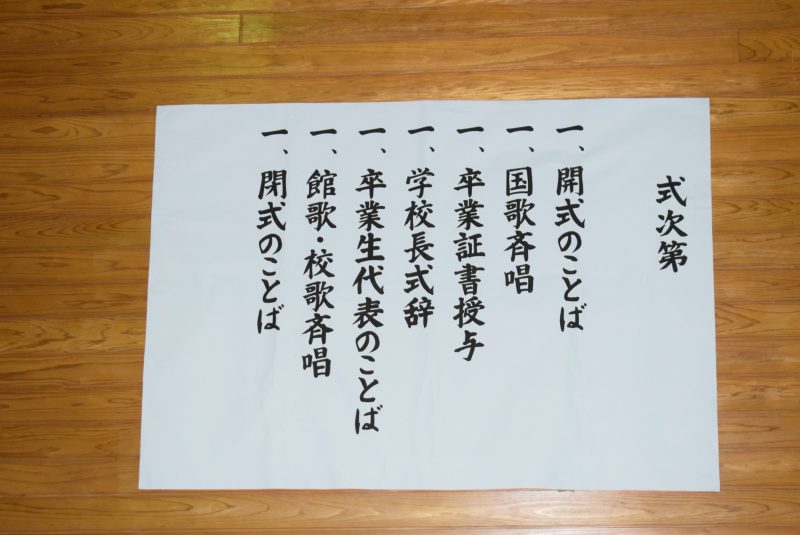 式次第
一、開式のことば
一、国歌斉唱
一、卒業証書授与
一、学校長式辞
一、卒業生代表のことば
一、館歌・校歌斉唱
一、閉式のことば